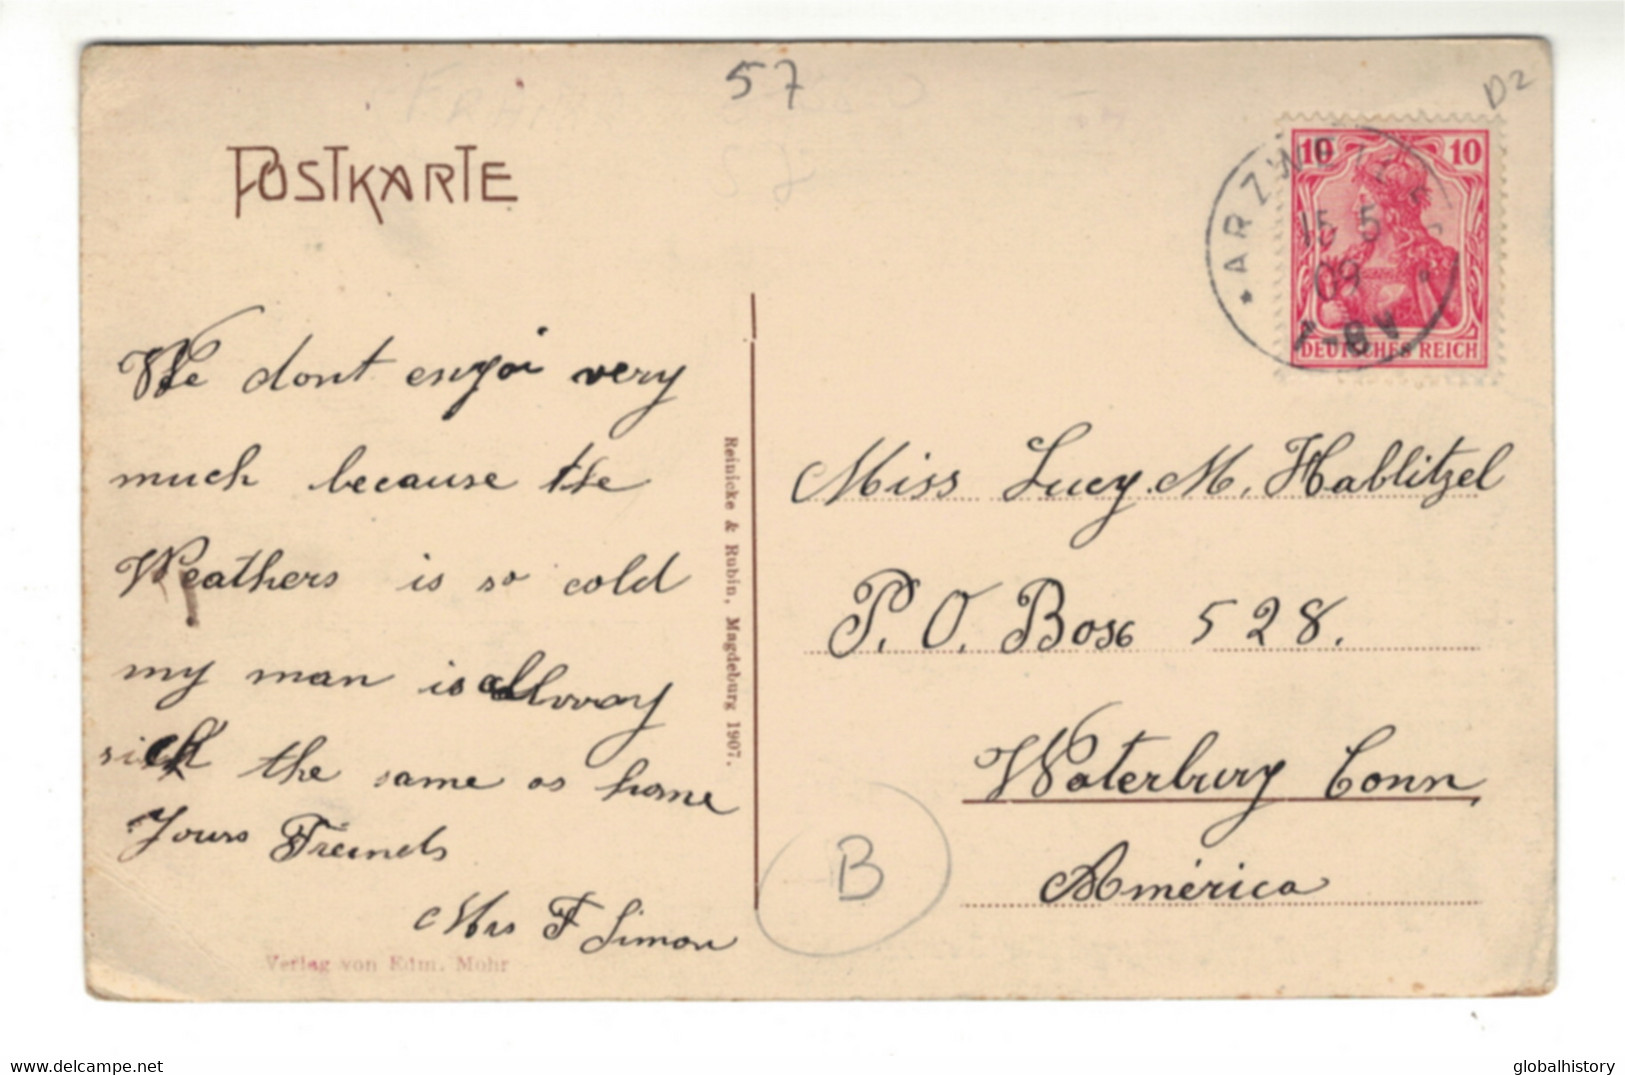 57
D2
POSTKARTE
10 10
ARZWEILER
15 5
09
DEUTSCHES REICH
We dont enyoi very
much because the
Weathers is so cold
my man is allway
sick the same as home
Yours Freinds
Mrs F Simon
Verlag von Edm. Mohr
Reinicke & Rubin, Magdeburg 1907.
Miss Lucy. M. Hablitzel
P. O. Box 528.
Waterbury Conn
América
B
delcampe.net
globalhistory